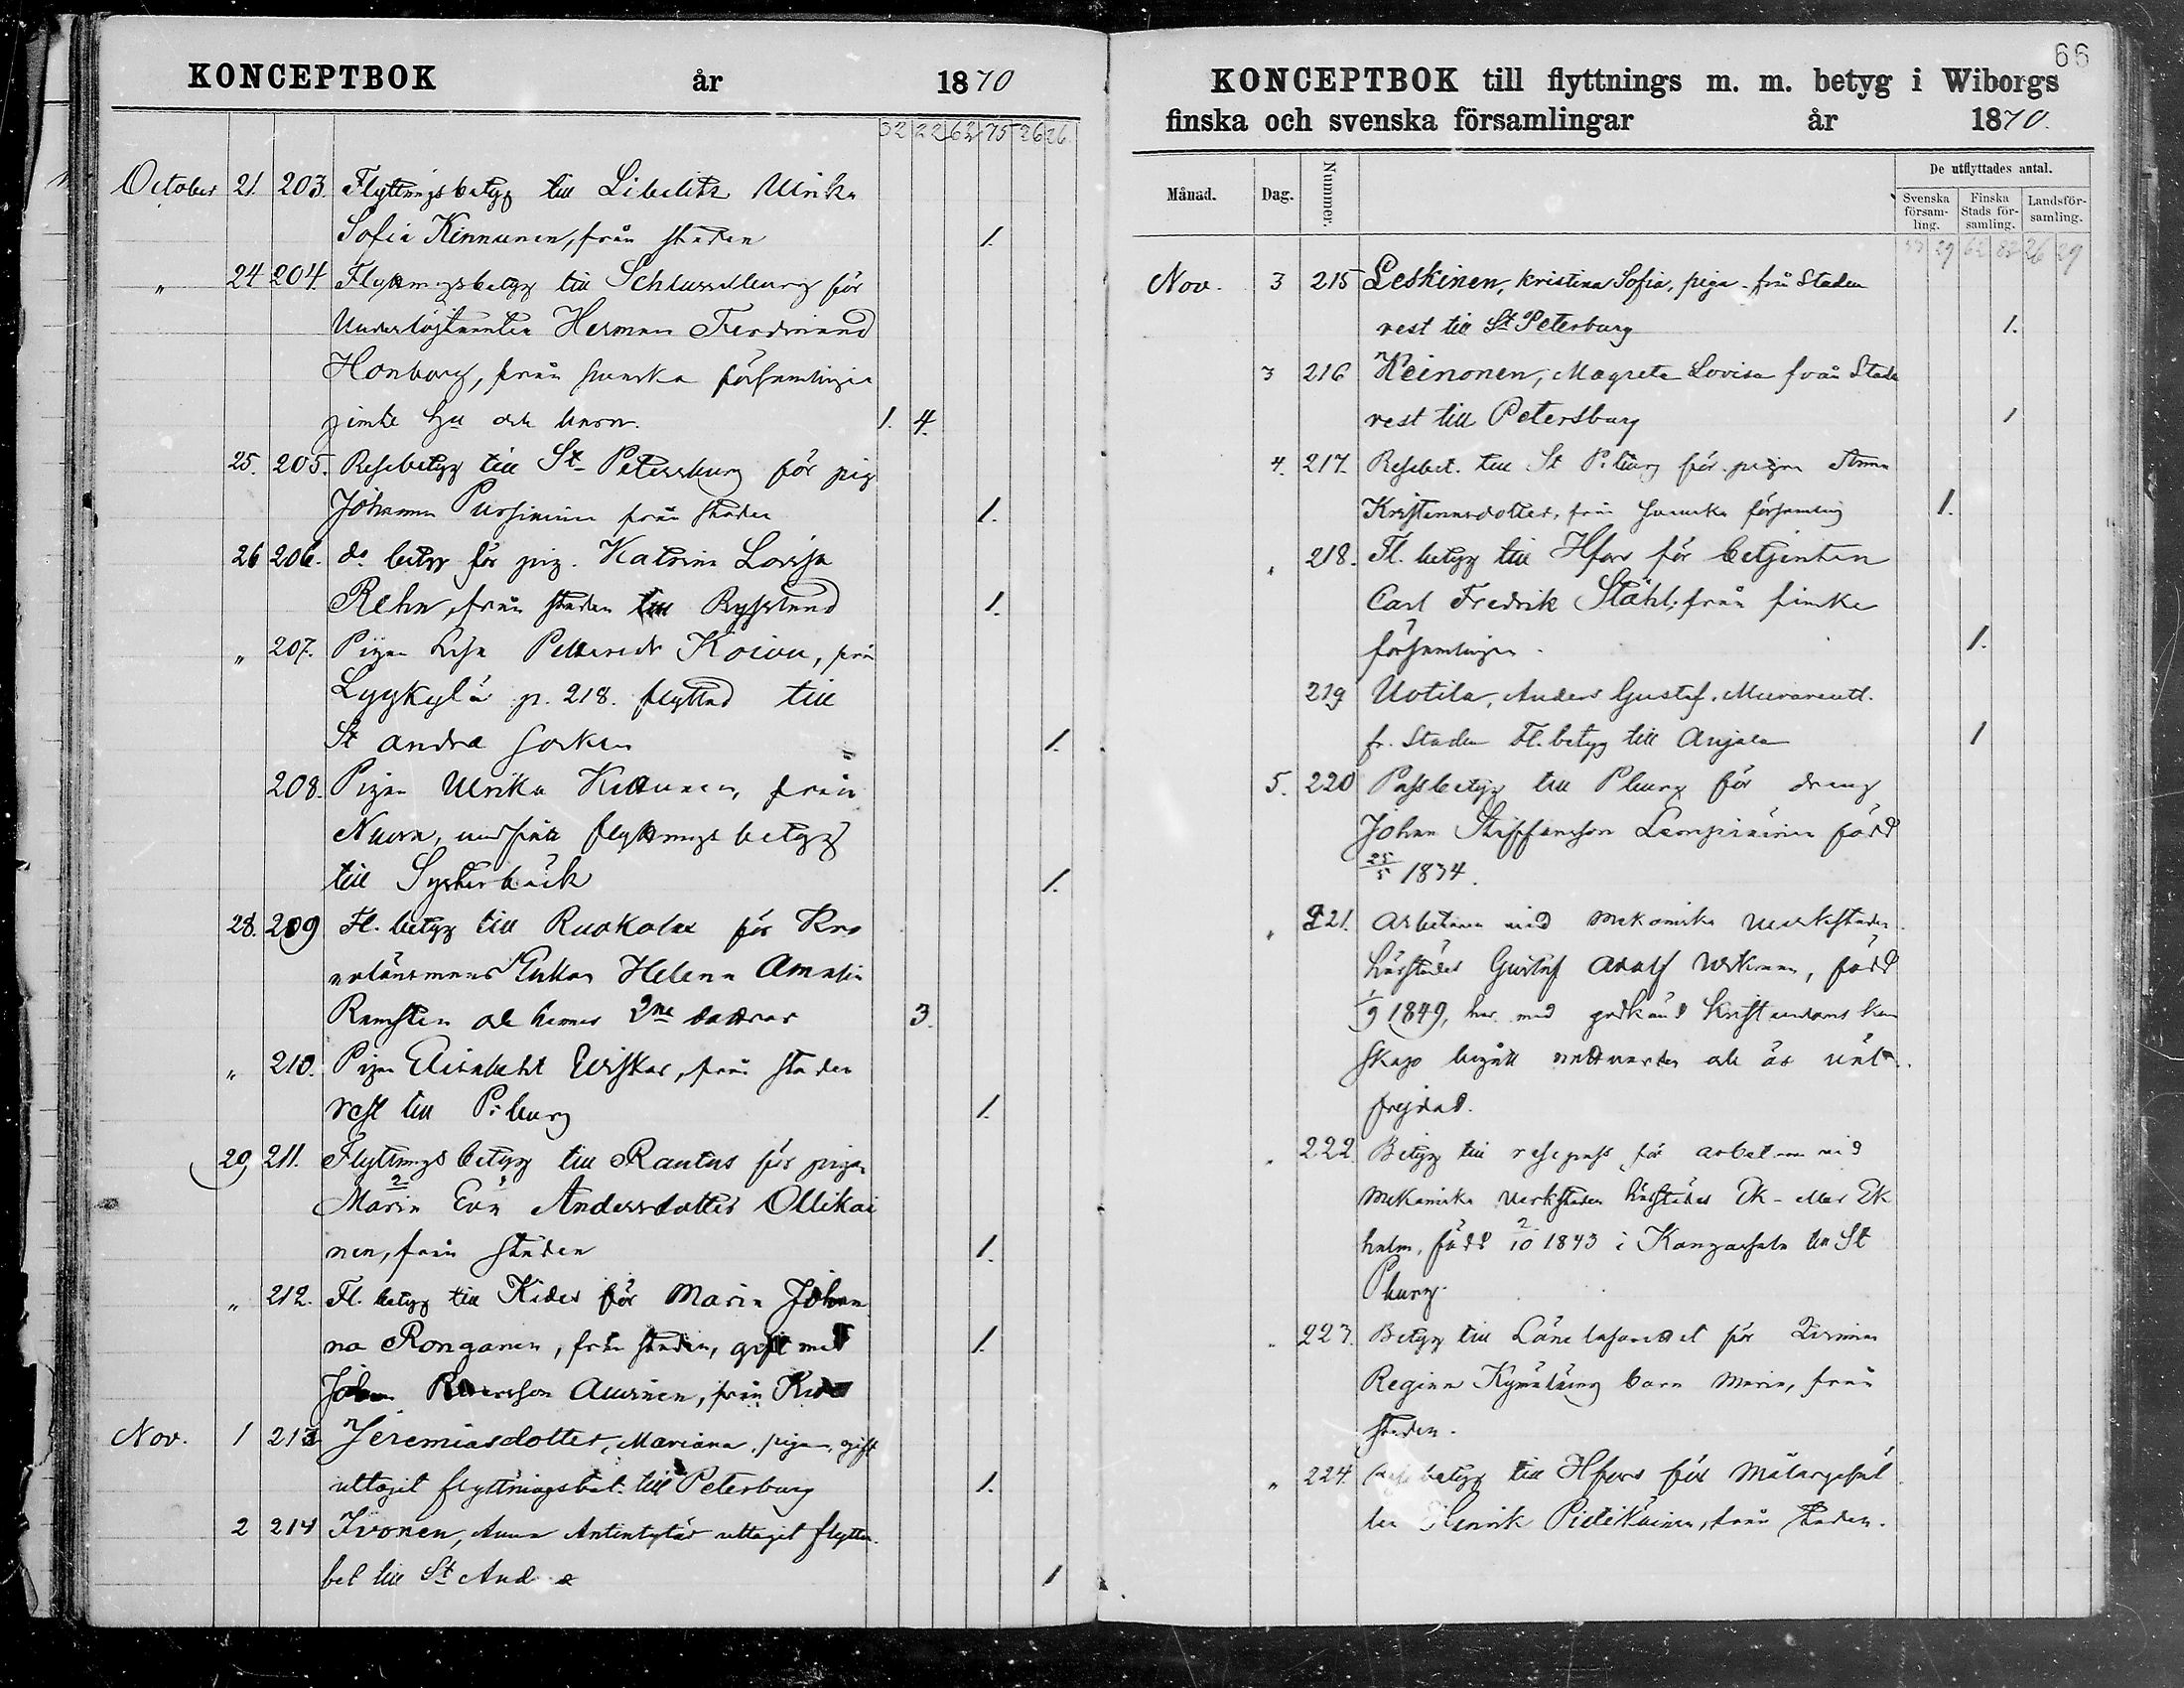 KONCEPTBOK år 1870
32 22 62 75 26 26
October 21. 203. Flyttningsbetyg till Libelits Ulrika
Sofia Kinnunen, från staden 1.
" 24 204 Flyttningsbetyg till Schlusselburg för
Underlöjtnanten Herman Ferdinand
Honborg, från svenska församlingen
jemte hu och barn. 1. 4.
25. 205. Resebetyg till St Petersburg för pig
Johanna Pursiainen från staden 1.
26 206. do betyg för pig. Katrina Lovisa
Rehn, från staden till Ryssland 1.
" 207. Pigan Lisa Pettersdr Koivu, från
Lyykylä p. 218. flyttad till
St Andrae socken 1.
208. Pigan Ulrika Kettunen, från
Nuora, undfått flyttningsbetyg
till Systerbäck 1.
28. 209 Fl. betyg till Ruokolax för Kro
nolänsmans Enkan Helena Amalia
Ramsten och hennes 2ne döttrar 3.
" 210. Pigan Elisabeth Eviskar, från staden
rest till P:burg 1.
29 211. Flyttnings betyg till Rautus för pigan
Maria Eva Andersdotter Ollikai
nen, från staden 1.
" 212. Fl. betyg till Kides för Maria Johan
na Ronganen, från staden, gift med
Johan Aurinen, från Kides 1.
Nov. 1 213 Jeremiasdotter, Mariana, pigan, gift
uttagit flyttningsbet. till Peterburg 1.
2 214 Ivonen, Anna Antintytär uttagit flyttn.
bet till St And æ 1
66
KONCEPTBOK till flyttnings m. m. betyg i Wiborgs
finska och svenska församlingar år 1870.
Månad. Dag. Nummer. De utflyttades antal.
Svenska försam-ling. Finska Stads för-samling. Landsför-samling.
33 29 62 82 26 29
Nov. 3 215 Leskinen, Kristina Sofia, piga från Staden
rest till St Peterburg 1.
3 216 Heinonen, Magreta Lovisa från Stade
rest till Petersburg 1
4. 217. Resebet. till St P:burg för pigan Anna
Kristiansdotter, från svenska församling 1.
" 218. Fl. betyg till Hfors för betjenten
Carl Fredrik Ståhl, från finska
församlingen. 1.
219 Uotila, Anders Gustaf. Murareutl.
fr. Staden Fl. betyg till Anjala 1
5. 220 Passbetyg till Pburg för dreng
Johan Staffansson Lempiäinen född
25/5 1834.
" 221. Arbetaren vid mekaniska verkstaden
härstädes Gustaf Adolf Wikman, född
1/9 1849, har med godkänd Kristendoms kun
skap begått nattvarden och är väl
frejdad.
" 222. Betyg till respass för arbetaren vid
mekaniska verkstaden härstädes Ek- eller Ek
holm, född 2/10 1843 i Kangasala till St
Pburg.
" 223. Betyg till Länelasarettet för
Regina barn Maria, från
staden.
" 224. Resebetyg till Hfors för Målargesäl
len Henrik Pietikäinen, från staden.